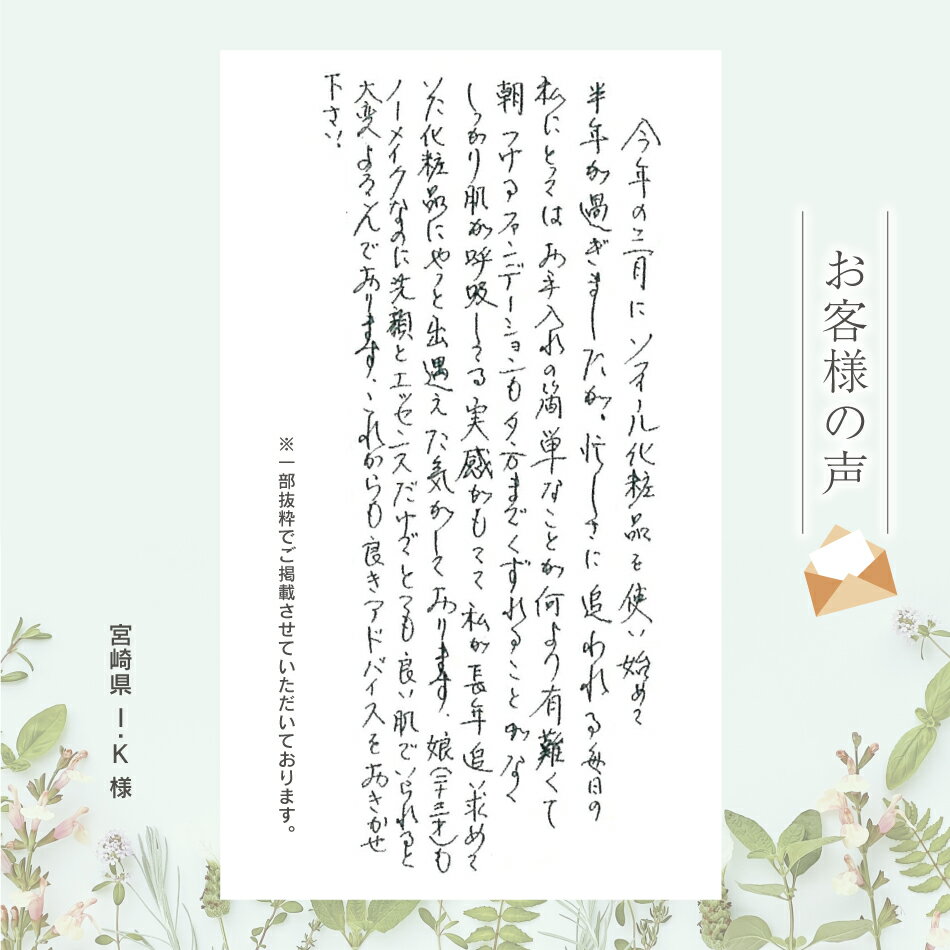 お客様の声
今年の三月にソフィール化粧品を使い始めて
半年が過ぎましたが、忙しさに追われる毎日の
私にとってはお手入れの簡単なことが何より有難くて
朝つけるファンデーションも夕方までくずれることがなく
しっかり肌が呼吸してる実感がもてて私が長年追い求めて
いた化粧品にやっと出遇えた気がしております。娘(二十三才)も
ノーメイクなのに洗顔とエッセンスだけでとっても良い肌でいられると
大変よろこんでおります。これからも良きアドバイスをおきかせ
下さい。
※一部抜粋でご掲載させていただいております。
宮崎県 I.K 様